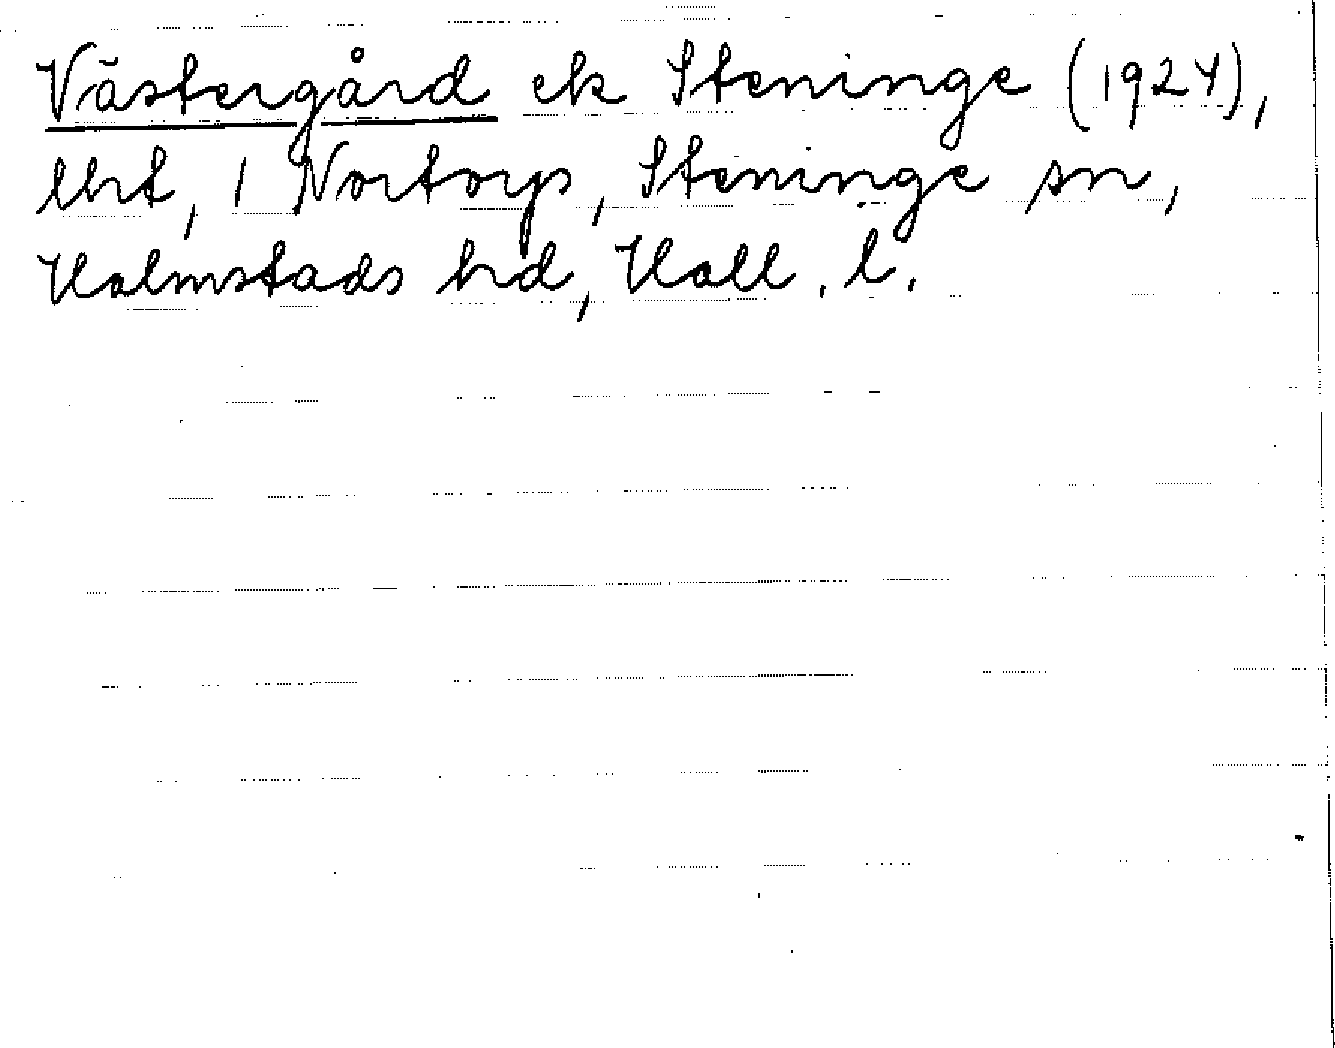 Västergård ek Steninge (1924),
lht, 1 Nortorp, Steninge sn,
Halmstads hd, Hall. l.